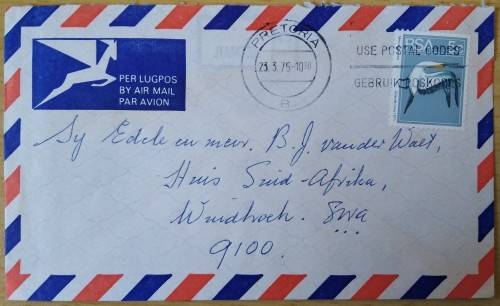 PRETORIA
23.3.75-10⁰⁰
B
USE POSTAL CODES
GEBRUIK POSKODES
RSA
PER LUGPOS
BY AIR MAIL
PAR AVION
Sy Edele en mevr. B. J. van der Walt,
Huis Suid-Afrika,
Windhoek. SWA
9100.